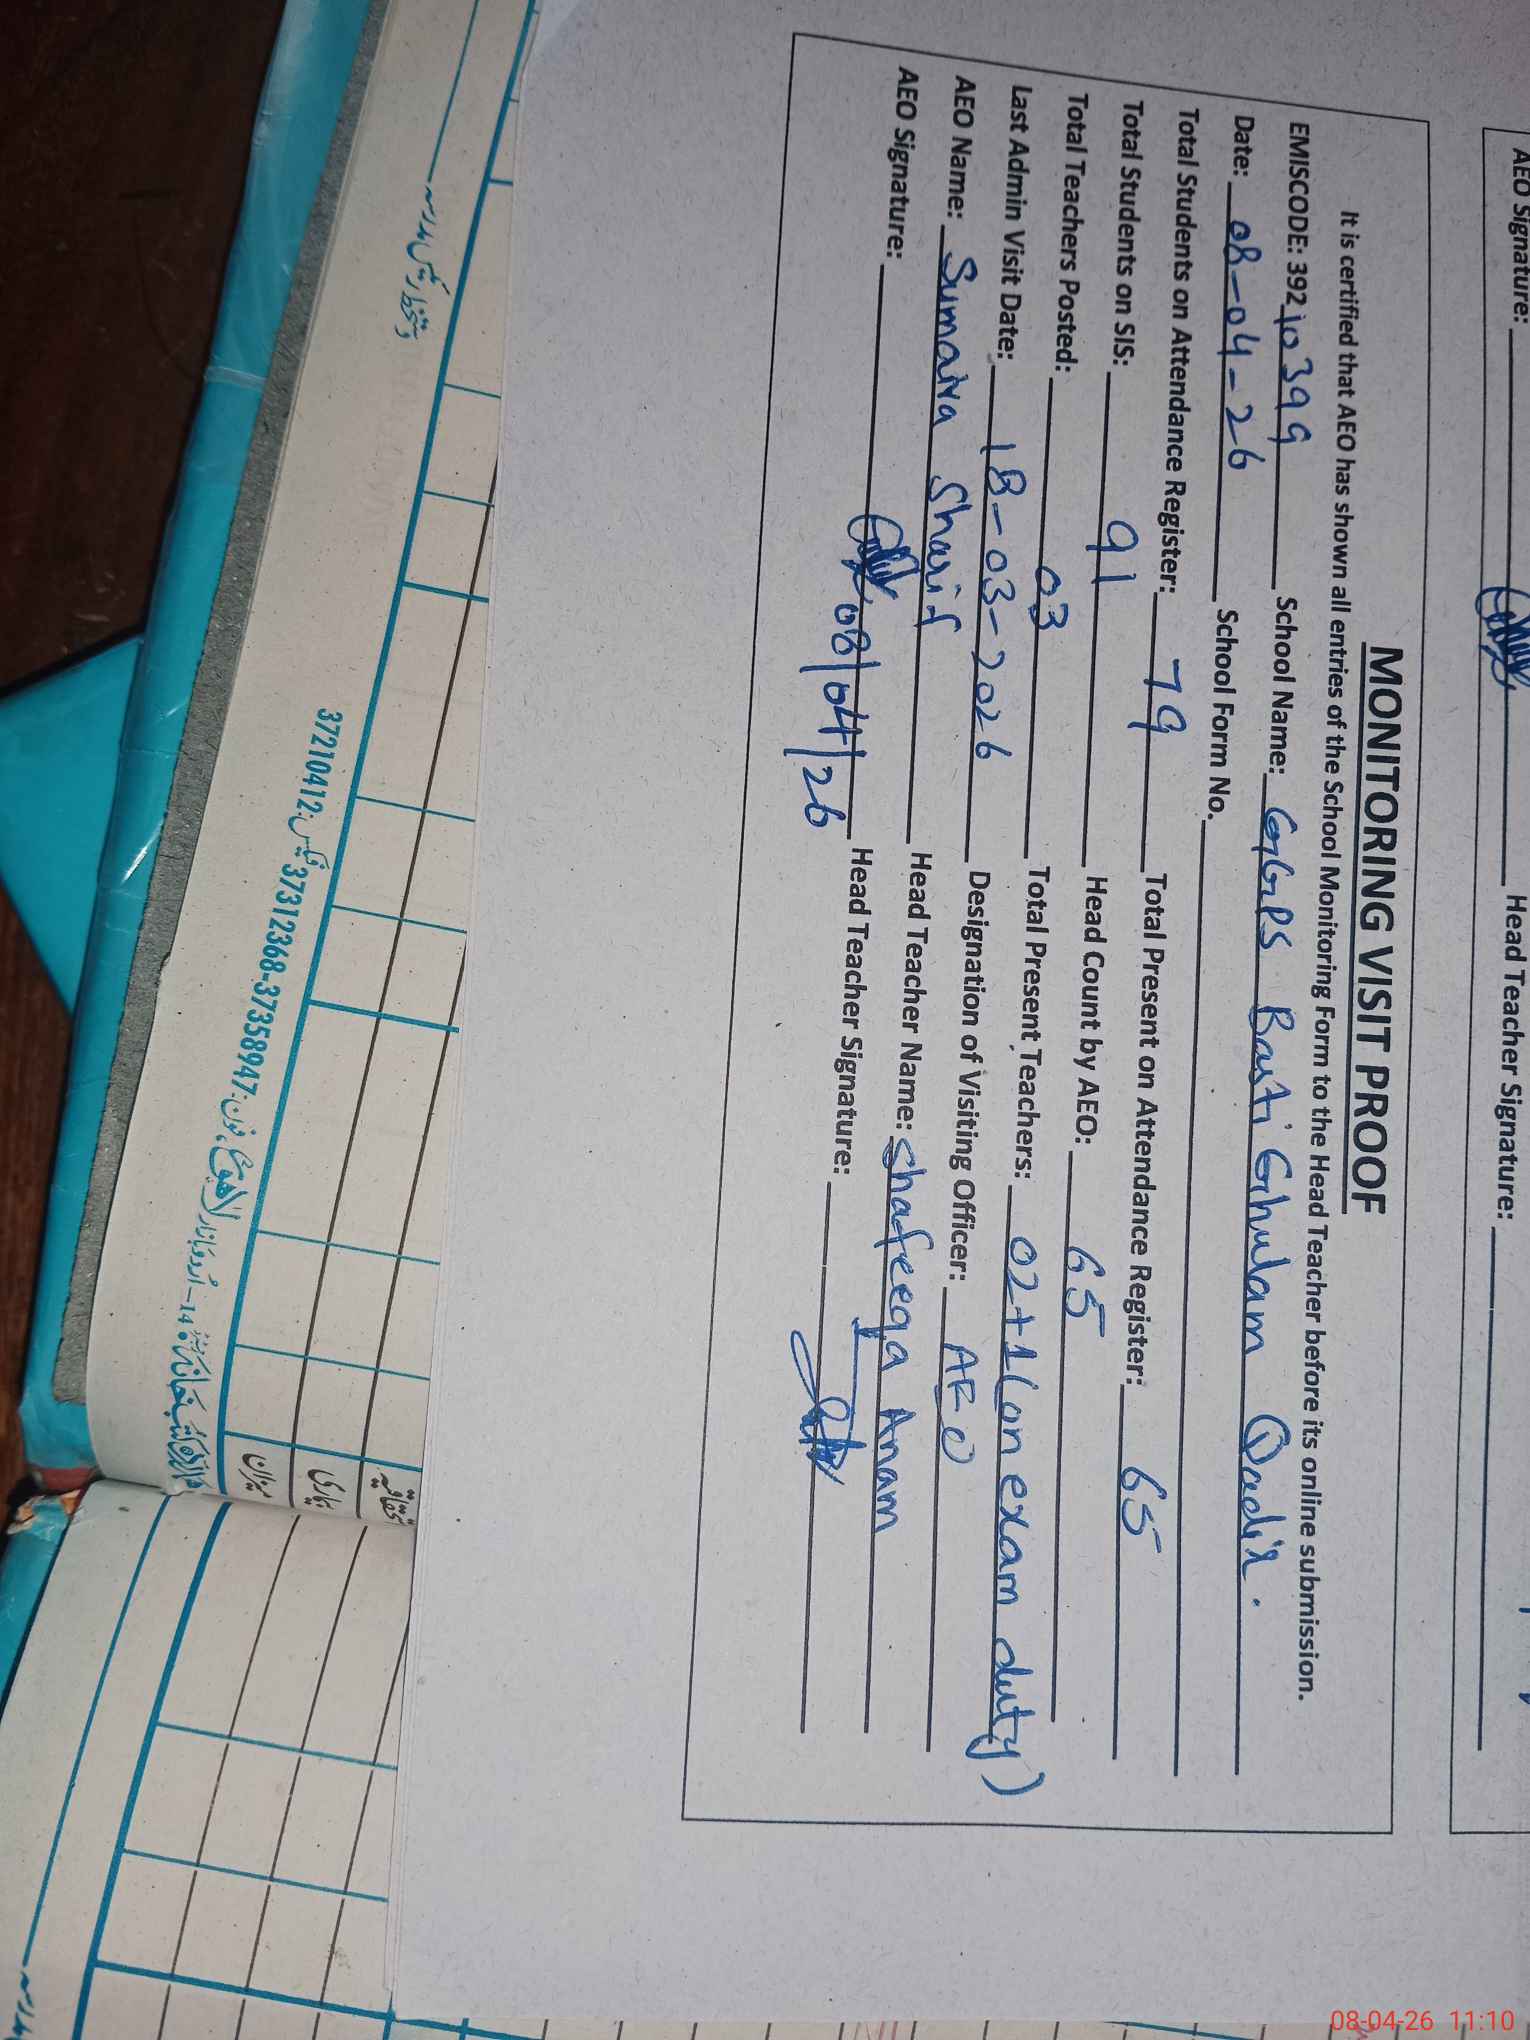 AEO Signature: Head Teacher Signature:
MONITORING VISIT PROOF
It is certified that AEO has shown all entries of the School Monitoring Form to the Head Teacher before its online submission.
EMISCODE: 39210399 School Name: GGPS Basti Ghulam Qadir.
Date: 08-04-26 School Form No.
Total Students on Attendance Register: 79 Total Present on Attendance Register: 65
Total Students on SIS: 91 Head Count by AEO: 65
Total Teachers Posted: 03 Total Present Teachers: 02+1(on exam duty)
Last Admin Visit Date: 18-03-2026 Designation of Visiting Officer: AEO
AEO Name: Sumaira Sharif Head Teacher Name: Shafeeqa Anam
AEO Signature: 08/04/26 Head Teacher Signature:
میزان
فیکس:37210412 فون:37312368-37358947
14-اُردو بازار لاہور
08-04-26 11:10